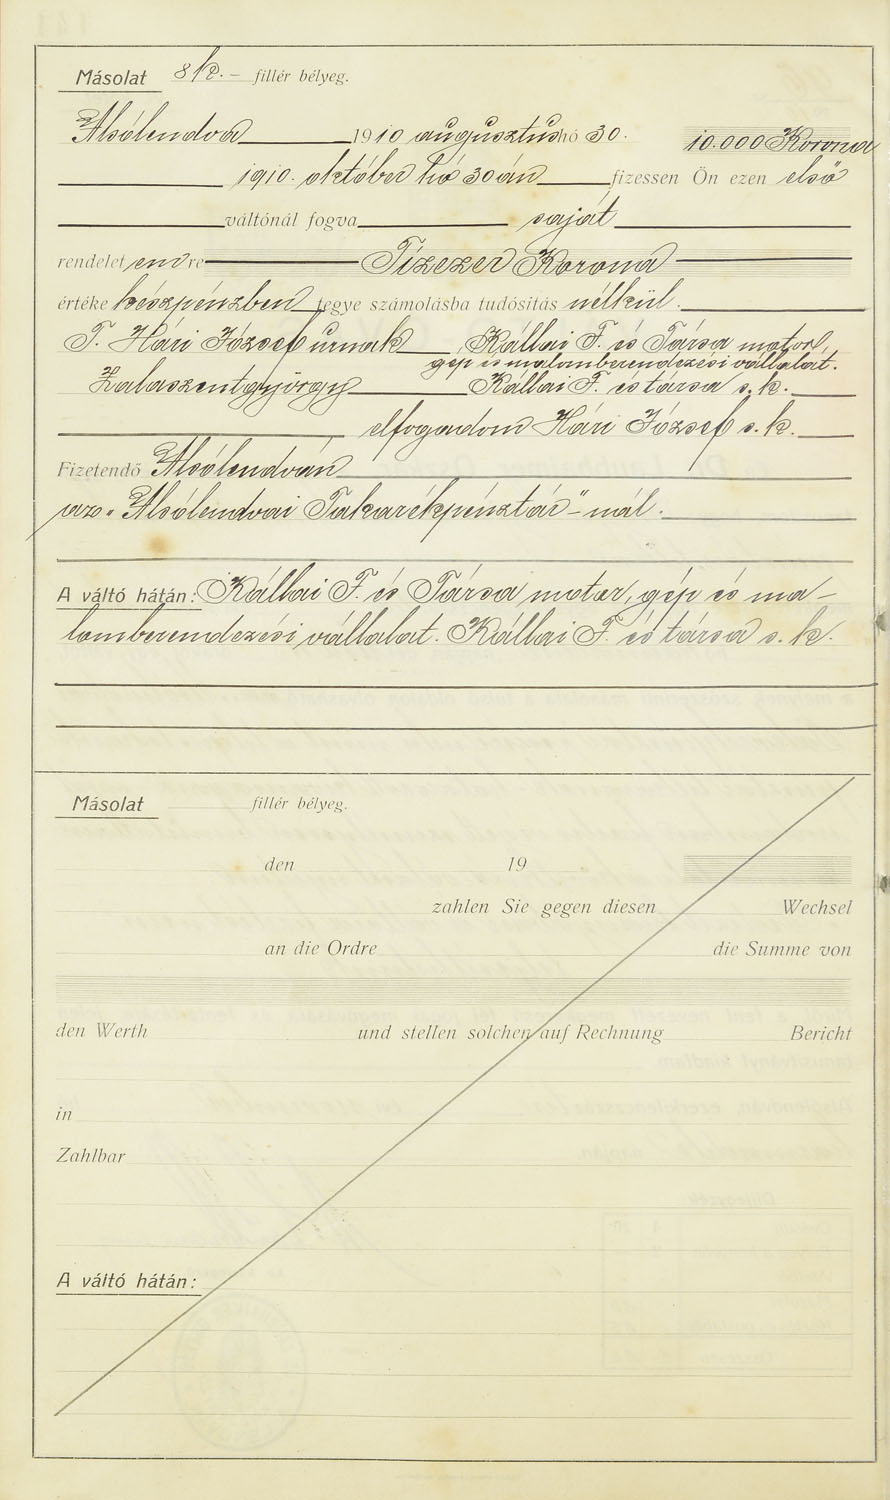 Másolat 8 k. – fillér bélyeg.
Alsólendva 1910 augusztus hó 30. 10.000 Korona
1910. október hó 30 án fizessen Ön ezen első
váltónál fogva saját
rendelet em re Tízezer Korona
értéke készpénzben tegye számolásba tudósítás nélkül.
T. Hári József úrnak Kállai F. és Társa motor,
gép és malomberendezési vállalat.
Zalaszentgyörgy Kállai F. és társa s. k.
elfogadom Hári József s. k.
Fizetendő Alsólendván
az „Alsólendvai Takarékpénztár"-nál.
A váltó hátán: Kállai F. és Társa motor, gép és ma-
lomberendezési vállalat. Kállai F. és társa s. k.
Másolat fillér bélyeg.
den 19
zahlen Sie gegen diesen Wechsel
an die Ordre die Summe von
den Werth und stellen solchen auf Rechnung Bericht
in
Zahlbar
A váltó hátán: